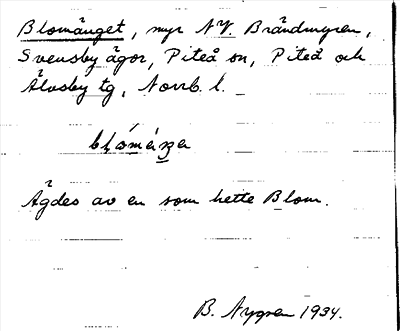 Blomänget, myr NV. Brändmyren,
Svensby ägor, Piteå sn, Piteå och
Älvsby tg, Norrb. l.
Ägdes av en som hette Blom.
B. Nygren 1934.